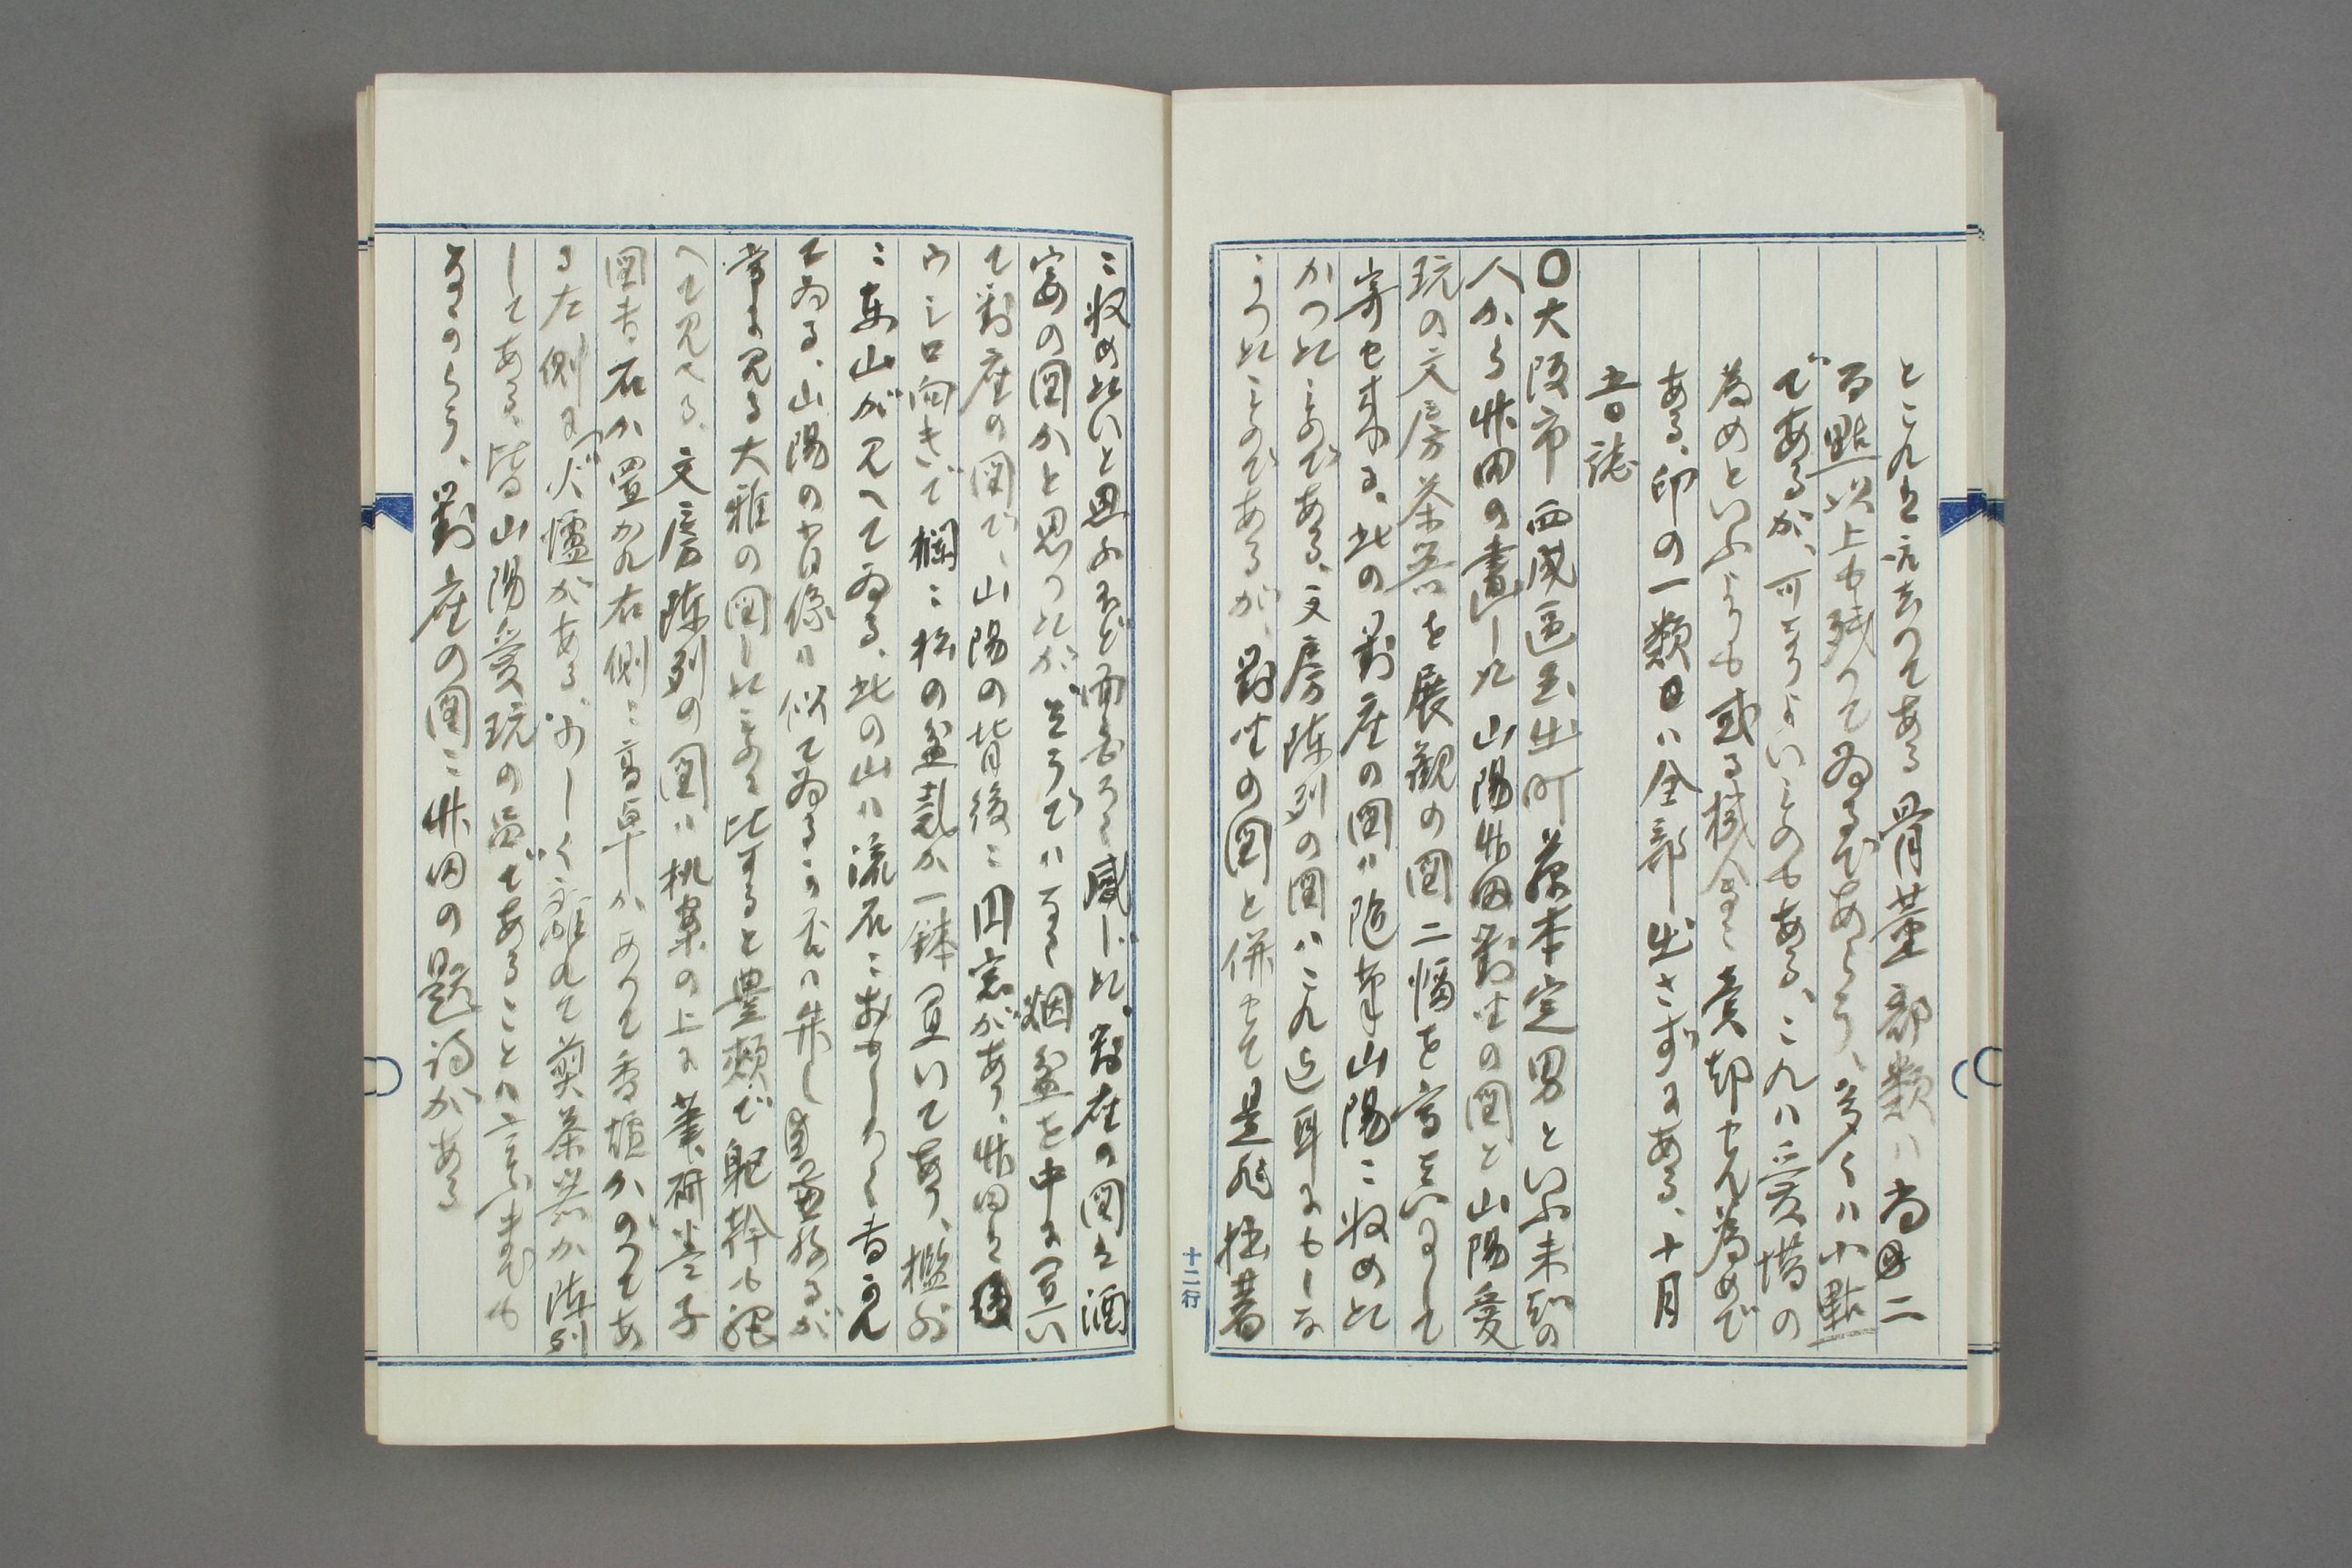 とこれを記るのである骨董部類ハ尚二
百點以上も残つてゐるであらう、多くハ小點
であるが、可なりよいものもある、これハ愛惜の
為めといふよりも或る機会に賣却せん為めで
ある、印の一類ハ全部出さずにある、十月
五日誌
〇大阪市西成區玉出町藤本定男といふ未知の
人から竹田の畫した山陽竹田對坐の図と山陽愛
玩の文房茶器を展觀の図二幅を寫真にして
寄せ来る、此の對座の図ハ随筆山陽に収めた
かつたものである、文房陳列の図ハこれ迄耳にもしな
かつたものであるが、對坐の図と併せて是非拙著
に収めたいと思ふほど面白く感じた、對座の図を酒
宴の図かと思つたが、そうでハなく烟盆を中に置い
て對座の図で、山陽の背後に円窓があり、竹田を
ウシロ向きで欄に松の盆栽が一鉢置いてあり、檻外
に東山が見へてゐる、此の山ハ流石におもしろく書かれ
てゐる、山陽の肖像ハ似てゐるか否ハ
常に見る大雅の図したものに比すると豊頬で躯幹も
へて見へる、文房陳列の図ハ机案の上に筆研
図書、石が置かれ右側に高卓があつて香爐がのつてあ
る左側に火爐がある、少しく離れて煎茶器が陳列
してある、皆山陽愛玩の品であることハ言ふまでも
なからう、對座の図に竹田の題詩がある
十二行